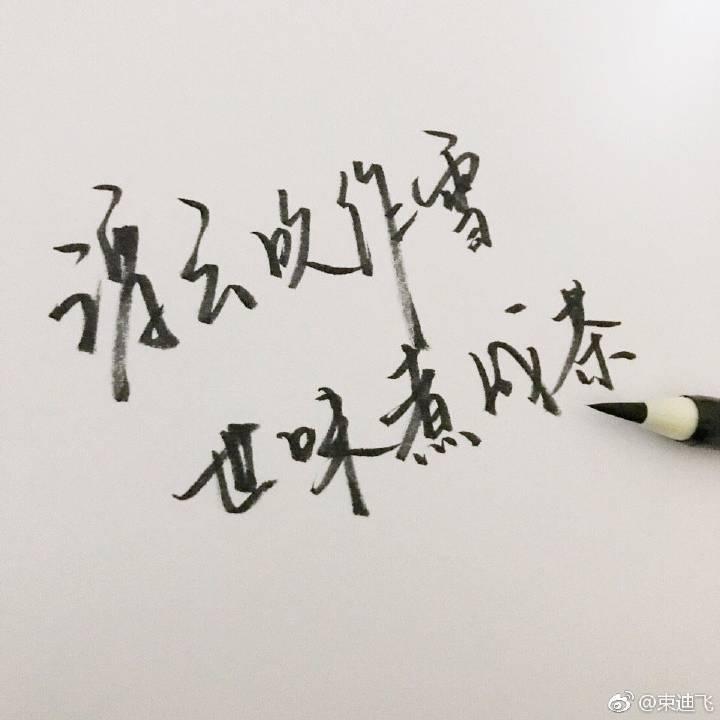 谁云吹作雪
世味煮成茶
@束迪飞